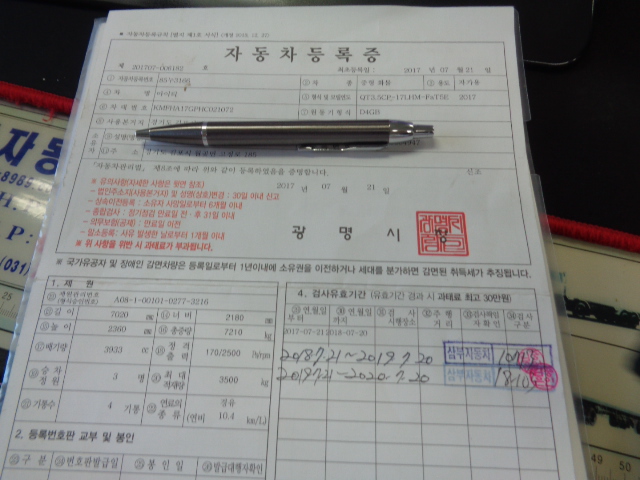 자동차등록증
제 201707-006182 호
최초등록일 : 2017 년 07 월 21 일
① 자동차등록번호
② 차 종 중형 화물
③ 용도 자가용
④ 차 명 마이티
⑤ 형식 및 모델연도 2017
⑥ 차대번호
⑦ 원동기형식 D4GB
⑧ 사용본거지
「자동차관리법」 제8조에 따라 위와 같이 등록하였음을 증명합니다.
2017 년 07 월 21 일
광 명 시 장
※ 유의사항(자세한 사항은 뒷면 참조)
- 법인주소(사용본거지) 및 성명(상호)변경 : 30일 이내 신고
- 상속이전등록 : 소유자 사망일로부터 6개월 이내
- 종합검사 : 정기점검 만료일 전·후 31일 이내
- 의무보험(공제) : 만료일 이전
- 말소등록: 사유 발생한 날로부터 1개월 이내
※ 위 사항을 위반 시 과태료가 부과됩니다.
※ 국가유공자 및 장애인 감면차량은 등록일로부터 1년이내에 소유권을 이전하거나 세대를 분가하면 감면된 취득세가 추징됩니다.
1. 제 원
A08-1-00101-0277-3216
길 이 7020 mm
너 비 2180 mm
높 이 2360 mm
총중량 7210 kg
배기량 3933 cc
정격출력 170/2500 Ps/rpm
승차정원 3 명
최대적재량 3500 kg
기통수 4 기통
연료의 종류 경유 (연비 10.4 km/L)
2. 등록번호판 교부 및 봉인
구 분 번호판발급일 봉 인 일 발급대행자확인
4. 검사유효기간 (유효기간 경과 시 과태료 최고 30만원)
연월일부터 연월일까지 검사시행장소 주행거리 검사책임자확인 검사구분
2017-07-21 2018-07-20
2018.7.21~2019.7.20 삼부자동차
2019.7.21~2020.7.20 삼부자동차